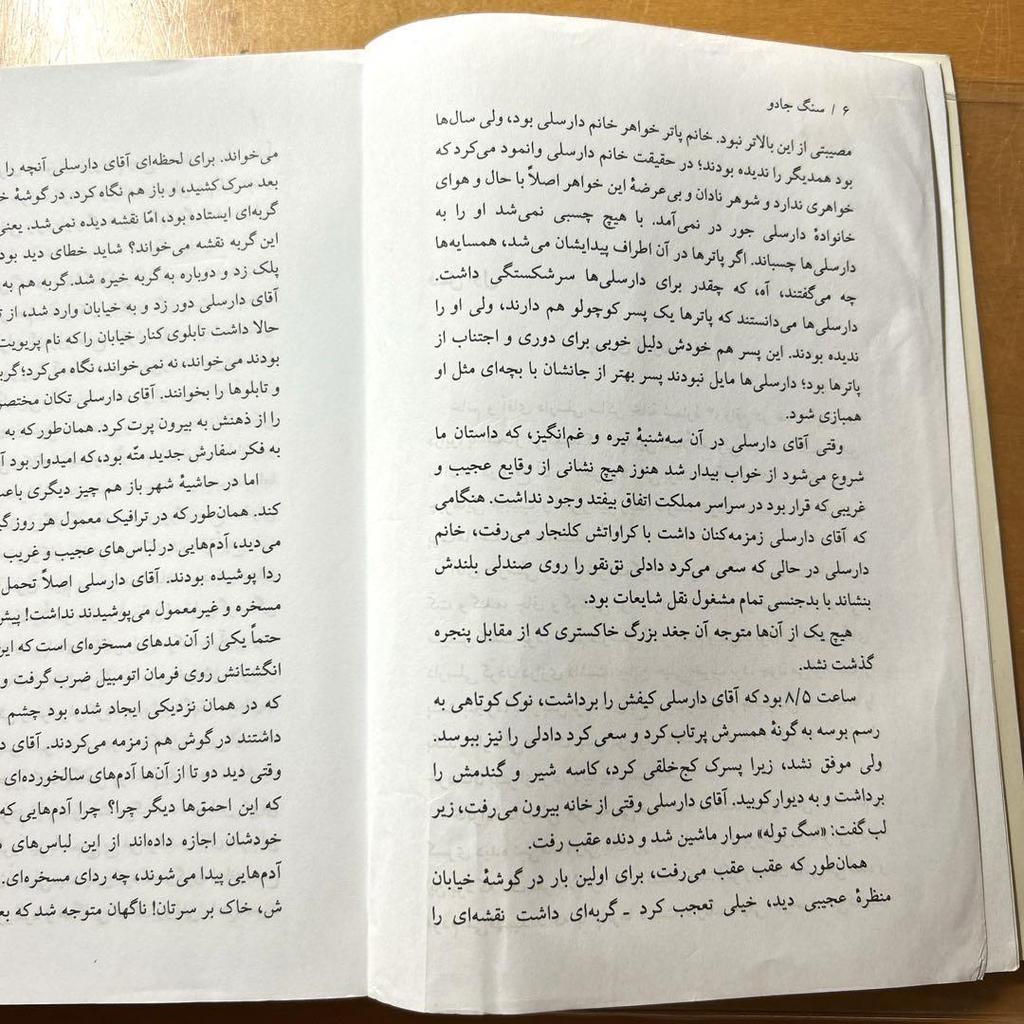 ۶ / سنگ جادو
مصیبتی از این بالاتر نبود. خانم پاتر خواهر خانم دارسلی بود، ولی سال‌ها
بود همدیگر را ندیده بودند؛ در حقیقت خانم دارسلی وانمود می‌کرد که
خواهری ندارد و شوهر نادان و بی‌عرضهٔ این خواهر اصلاً با حال و هوای
خانوادهٔ دارسلی جور در نمی‌آمد. با هیچ چسبی نمی‌شد او را به
دارسلی‌ها چسباند. اگر پاترها در آن اطراف پیدایشان می‌شد، همسایه‌ها
چه می‌گفتند، آه، که چقدر برای دارسلی‌ها سرشکستگی داشت.
دارسلی‌ها می‌دانستند که پاترها یک پسر کوچولو هم دارند، ولی او را
ندیده بودند. این پسر هم خودش دلیل خوبی برای دوری و اجتناب از
پاترها بود؛ دارسلی‌ها مایل نبودند پسر بهتر از جانشان با بچه‌ای مثل او
همبازی شود.
وقتی آقای دارسلی در آن سه‌شنبهٔ تیره و غم‌انگیز، که داستان ما
شروع می‌شود از خواب بیدار شد هنوز هیچ نشانی از وقایع عجیب و
غریبی که قرار بود در سراسر مملکت اتفاق بیفتد وجود نداشت. هنگامی
که آقای دارسلی زمزمه‌کنان داشت با کراواتش کلنجار می‌رفت، خانم
دارسلی در حالی که سعی می‌کرد دادلی نق‌نقو را روی صندلی بلندش
بنشاند با بدجنسی تمام مشغول نقل شایعات بود.
هیچ یک از آن‌ها متوجه آن جغد بزرگ خاکستری که از مقابل پنجره
گذشت نشد.
ساعت ۸/۵ بود که آقای دارسلی کیفش را برداشت، نوک کوتاهی به
رسم بوسه به گونهٔ همسرش پرتاب کرد و سعی کرد دادلی را نیز ببوسد.
ولی موفق نشد، زیرا پسرک کج‌خلقی کرد، کاسه شیر و گندمش را
برداشت و به دیوار کوبید. آقای دارسلی وقتی از خانه بیرون می‌رفت، زیر
لب گفت: «سگ توله» سوار ماشین شد و دنده عقب رفت.
همان‌طور که عقب عقب می‌رفت، برای اولین بار در گوشهٔ خیابان
منظرهٔ عجیبی دید، خیلی تعجب کرد ـ گربه‌ای داشت نقشه‌ای را
می‌خواند. برای لحظه‌ای آقای دارسلی آنچه را
بعد سرک کشید، و باز هم نگاه کرد. در گوشهٔ
گربه‌ای ایستاده بود، امّا نقشه دیده نمی‌شد. یعنی
این گربه نقشه می‌خواند؟ شاید خطای دید بود
پلک زد و دوباره به گربه خیره شد. گربه هم به
آقای دارسلی دور زد و به خیابان وارد شد، از
حالا داشت تابلوی کنار خیابان را که نام پریویت
بودند می‌خواند، نه نمی‌خواند، نگاه می‌کرد؛
و تابلوها را بخوانند. آقای دارسلی تکان مختصر
را از ذهنش به بیرون پرت کرد. همان‌طور که به
به فکر سفارش جدید متّه بود، که امیدوار بود
اما در حاشیهٔ شهر باز هم چیز دیگری
کند. همان‌طور که در ترافیک معمول هر روز
می‌دید، آدم‌هایی در لباس‌های عجیب و غریب
ردا پوشیده بودند. آقای دارسلی اصلاً تحمل
مسخره و غیرمعمول می‌پوشیدند نداشت!
حتماً یکی از آن مدهای مسخره‌ای است که
انگشتانش روی فرمان اتومبیل ضرب گرفت و
که در همان نزدیکی ایجاد شده بود چشم
داشتند در گوش هم زمزمه می‌کردند. آقای
وقتی دید دو تا از آن‌ها آدم‌های سالخورده‌ای
که این احمق‌ها دیگر چرا؟ چرا آدم‌هایی که
خودشان اجازه داده‌اند از این لباس‌های
آدم‌هایی پیدا می‌شوند، چه ردای مسخره‌ای.
ش، خاک بر سرتان! ناگهان متوجه شد که